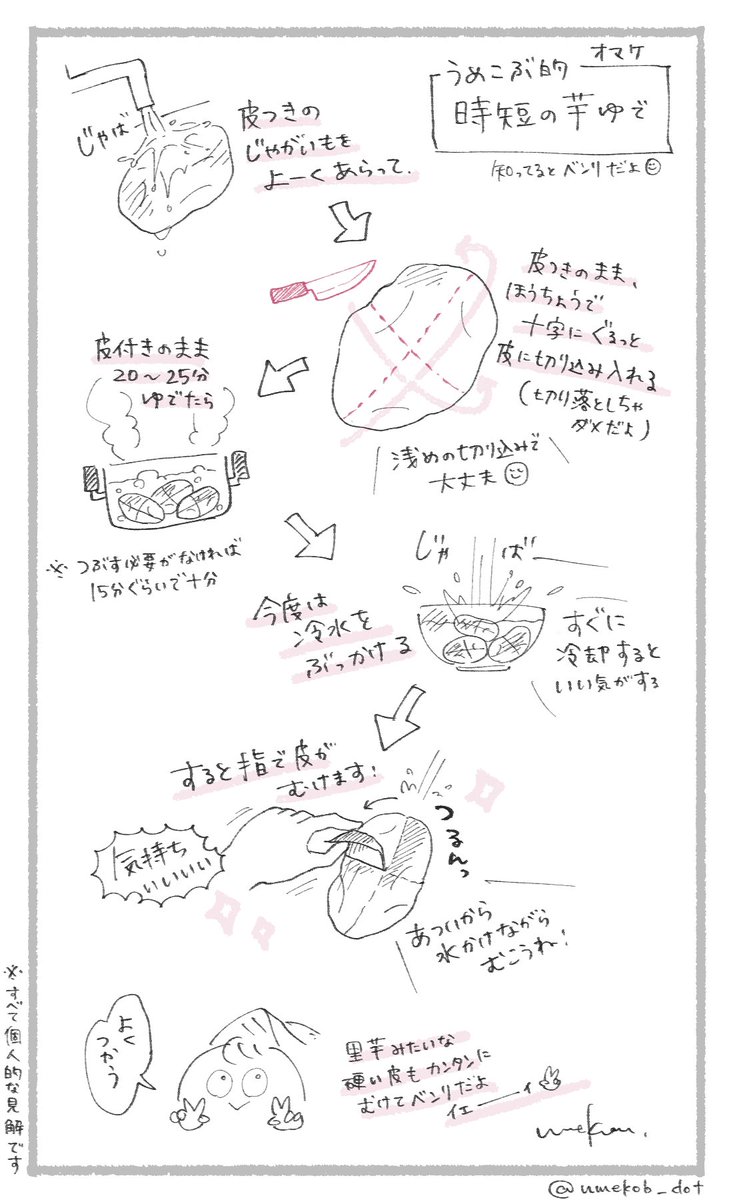 オマケ
うめこぶ的
時短の芋ゆで
知ってるとベンリだよ
じゃばー
皮つきの
じゃがいもを
よーくあらって、
皮つきのまま、
ほうちょうで
十字にぐるっと
皮に切り込み入れる
(切り落としちゃ
ダメだよ)
浅めの切り込みで
大丈夫
皮付きのまま
20〜25分
ゆでたら
※つぶす必要がなければ
15分ぐらいで十分
今度は
冷水を
ぶっかける
じゃばー
すぐに
冷却すると
いい気がする
すると指で皮が
むけます!
気持ち
いいいい
つるんっ
あついから
水かけながら
むこうね!
よく
つかう
里芋みたいな
硬い皮もカンタンに
むけてベンリだよ
イエーイ
※すべて個人的な見解です
@umekob_dot